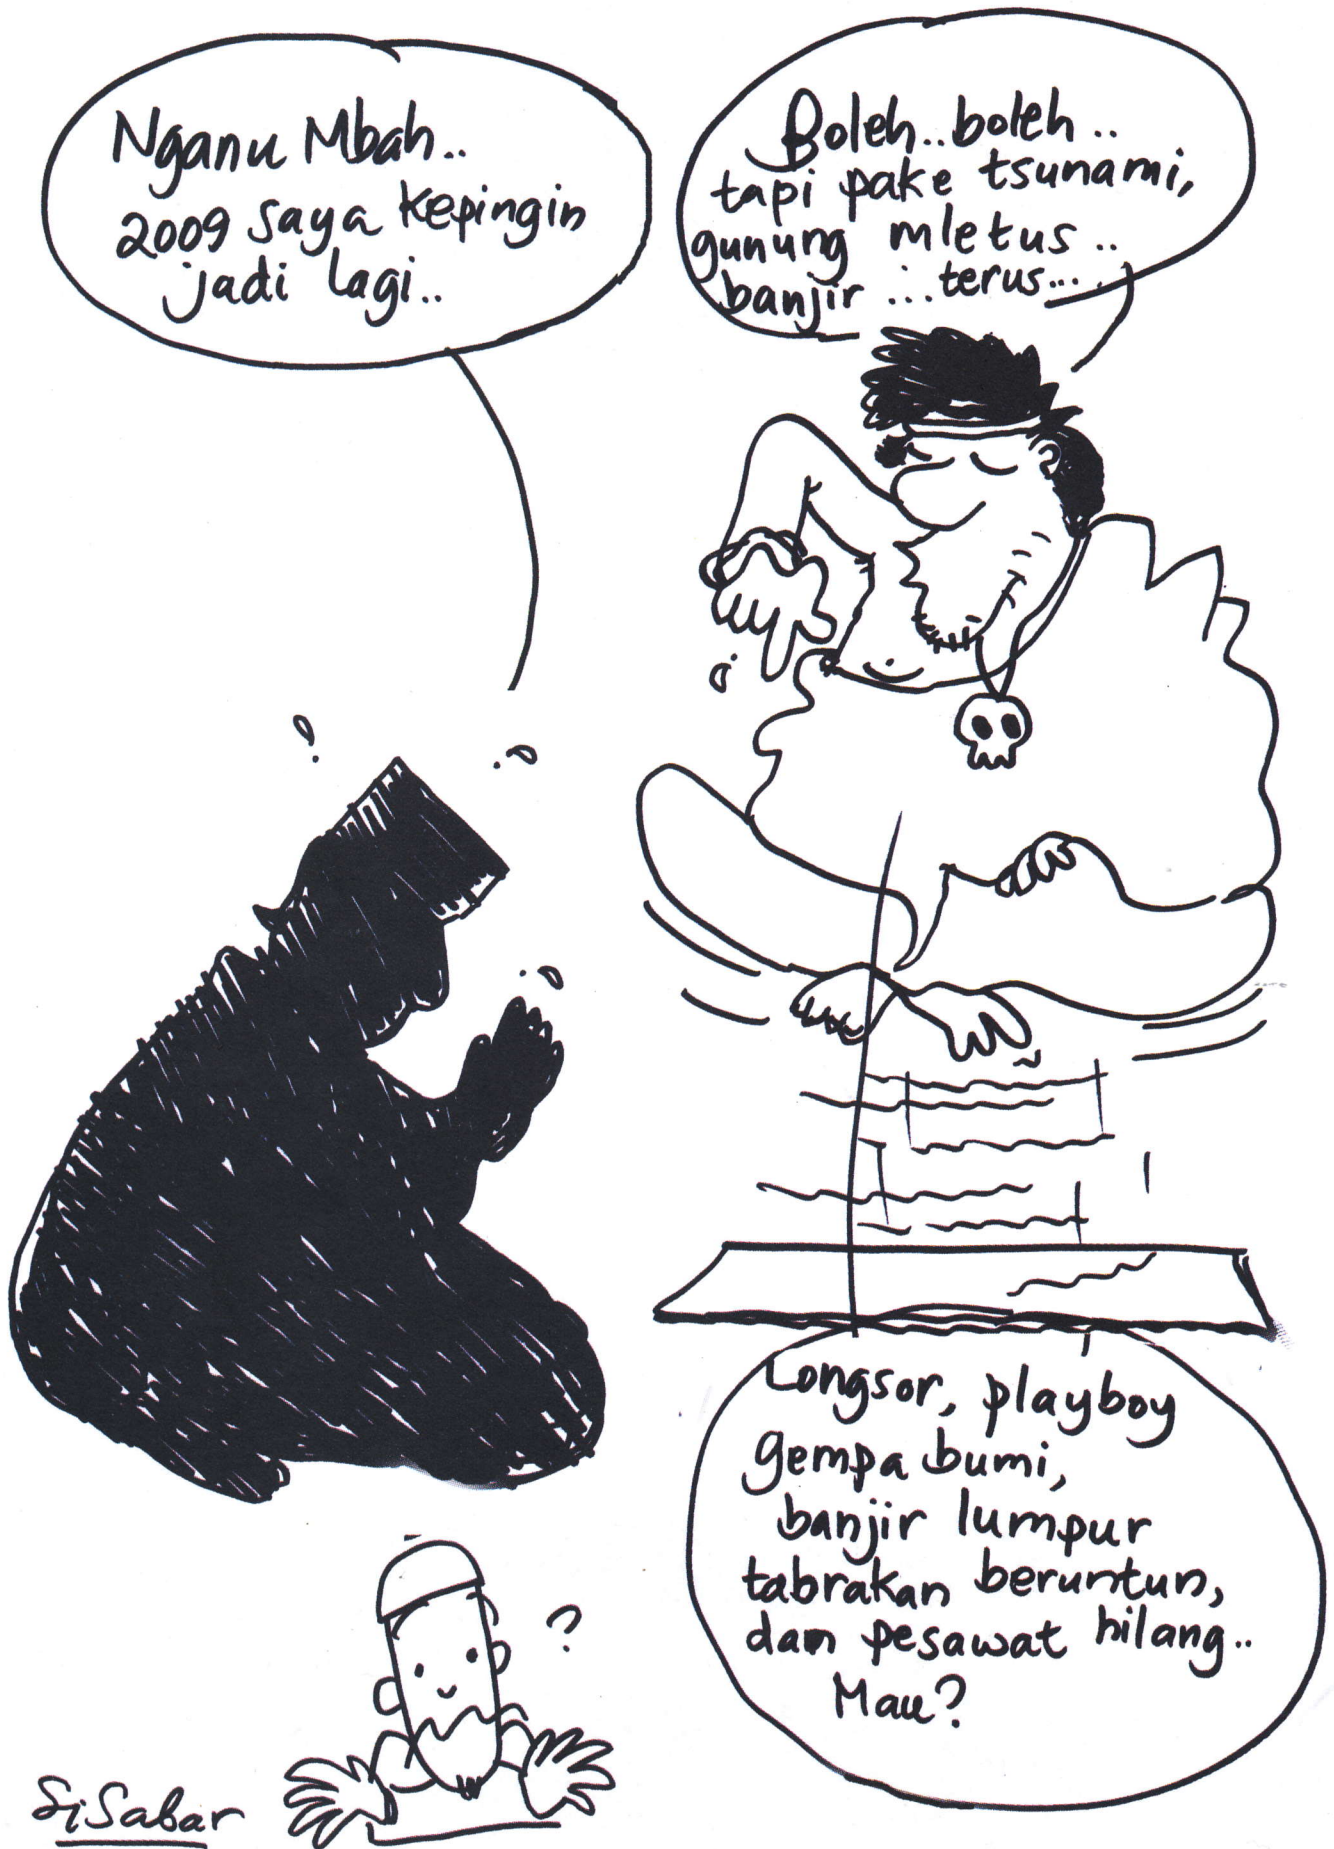 Nganu Mbah..
2009 saya kepingin
jadi lagi..
Boleh..boleh..
tapi pake tsunami,
gunung mletus..
banjir...terus....
Longsor, playboy
gempa bumi,
banjir lumpur
tabrakan beruntun,
dan pesawat hilang..
Mau?
?
SiSabar